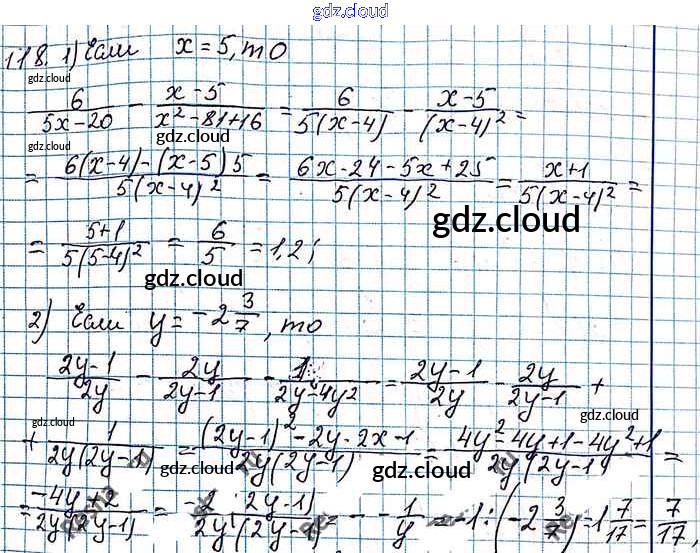 gdz.cloud
118. 1) Если x = 5, то
gdz.cloud
6/(5x-20) - (x-5)/(x²-81+16) = 6/(5(x-4)) - (x-5)/(x-4)² =
gdz.cloud
gdz.cloud
= (6(x-4)-(x-5)5)/(5(x-4)²) = (6x-24-5x+25)/(5(x-4)²) = (x+1)/(5(x-4)²) =
gdz.cloud
= (5+1)/(5(5-4)²) = 6/5 = 1,2;
gdz.cloud
2) Если y = -2 3/7, то
(2y-1)/2y - 2y/(2y-1) - 1/(2y-4y²) = (2y-1)/2y - 2y/(2y-1) +
gdz.cloud
+ 1/(2y(2y-1)) = ((2y-1)²-2y·2x-1)/(2y(2y-1)) = (4y²-4y+1-4y²+1)/(2y(2y-1)) =
gdz.cloud
gdz.cloud
= (-4y+2)/(2y(2y-1)) = (-2(2y-1))/(2y(2y-1)) = -1/y = -1:(-2 3/7) = 1 7/17 = 7/17,